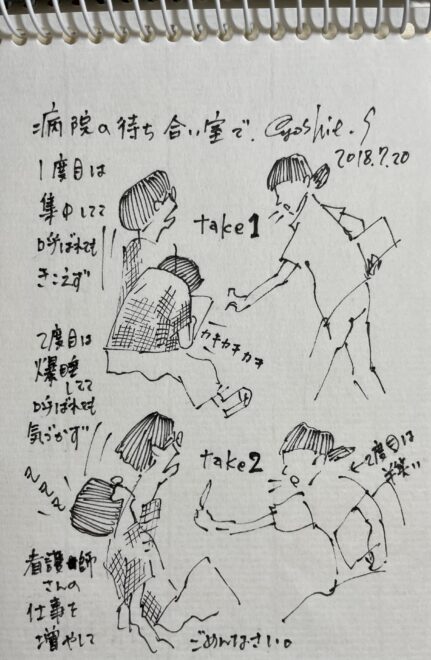 病院の待ち合い室で。 @yoshie.S
2018.7.20
1度目は
集中してて
呼ばれても
きこえず
take1
カキカキカキ
2度目は
爆睡
してて
呼ばれても
気づかず
take2
←2度目は
zzz
看護師
さんの
仕事を
増やして
ごめんなさい。